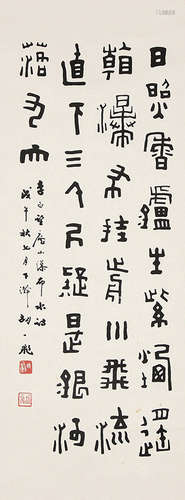 日照香爐生紫烟遥
看瀑布挂前川飛流
直下三千尺疑是銀河
落九天
李白望廬山瀑布水詩